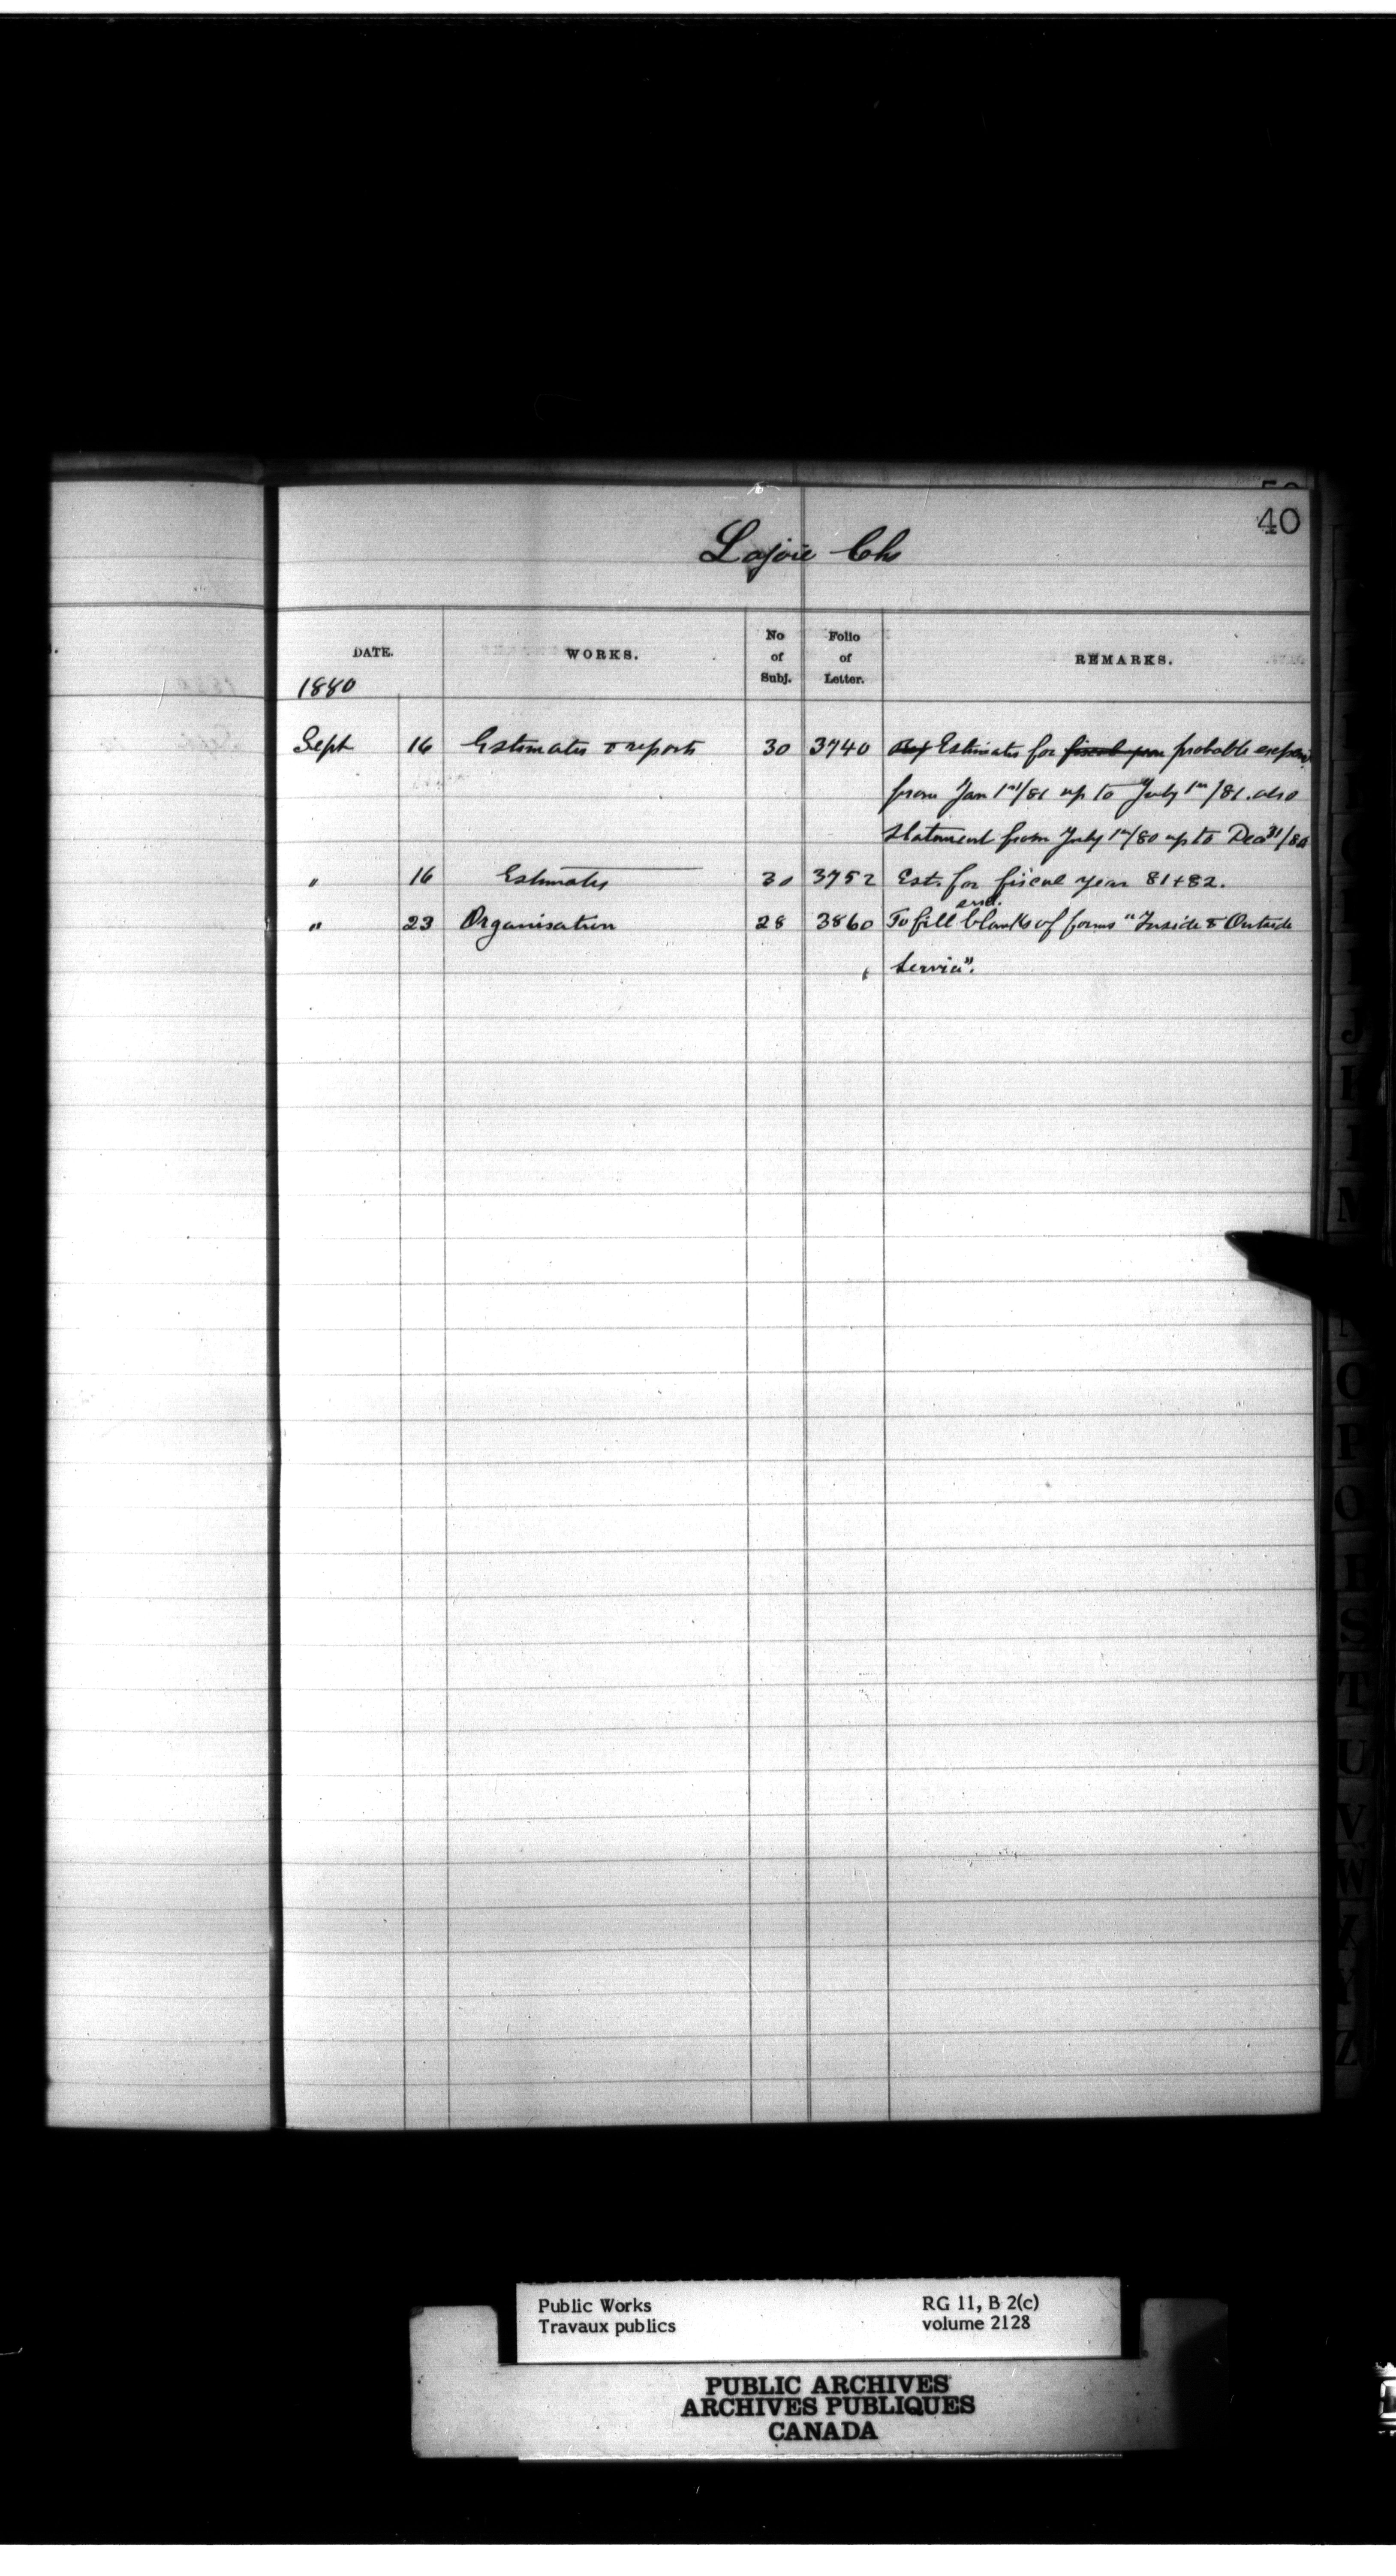 40
Lajoie Chs
DATE. WORKS. No of Subj. Folio of Letter. REMARKS.
1880
Sept 16 Estimates & reports 30 3740 Estimates for fiscal year probable expen
from Jan 1st/81 up to July 1st/81. also
Statement from July 1st/80 up to Dec 31/80
" 16 Estimates 30 3752 Est. for fiscal year 81+82.
" 23 Organisation 28 3860 To fill blanks of forms "Inside & Outside
Service".
Public Works RG 11, B 2(c)
Travaux publics volume 2128
PUBLIC ARCHIVES
ARCHIVES PUBLIQUES
CANADA